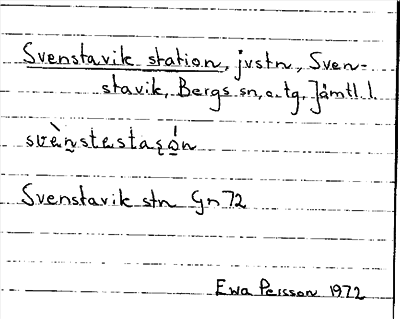 Svenstavik station, jvstn, Sven-
stavik, Bergs sn, o. tg, Jämtl. l.
svèn̥stestaʂó̱n
Svenstavik stn Gn 72
Ewa Persson 1972